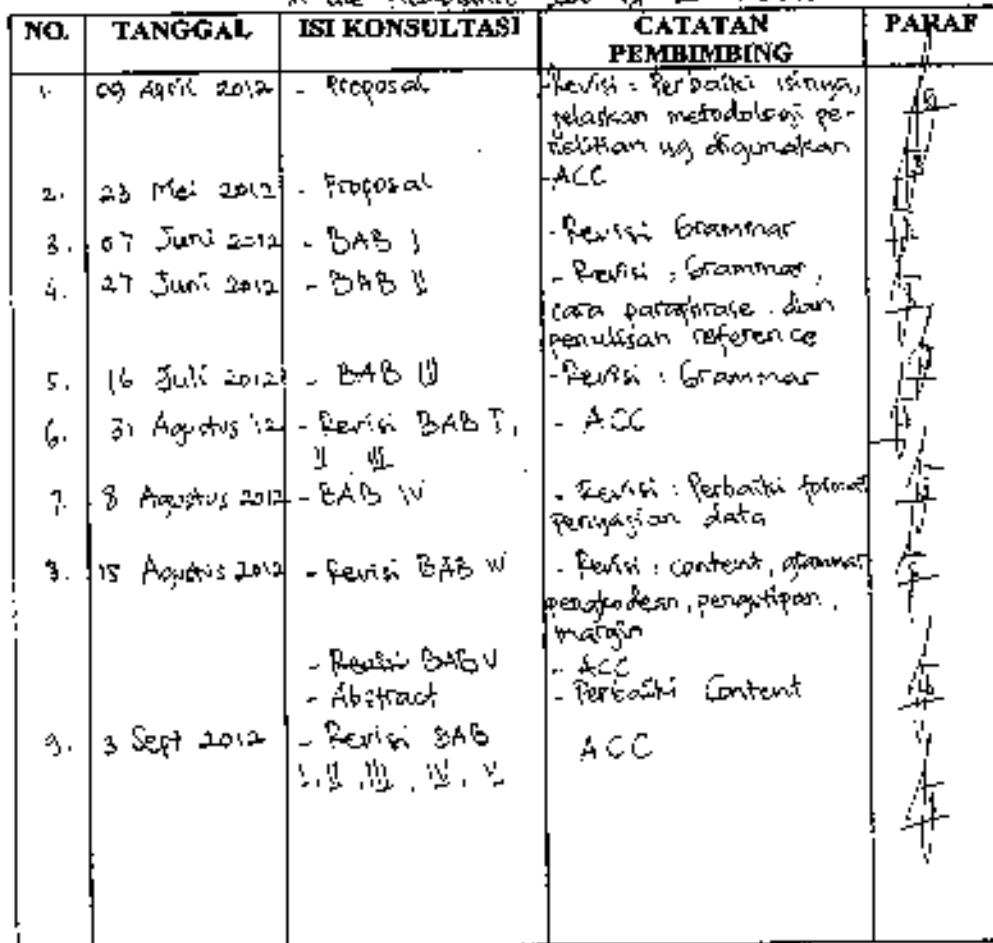 NO. TANGGAL ISI KONSULTASI CATATAN PEMBIMBING PARAF
1. 09 April 2012 - Proposal -Revisi : Perbaiki isinya,
jelaskan metodologi pe-
nelitian yg digunakan
2. 23 Mei 2012 - Proposal -ACC
3. 07 Juni 2012 - BAB I - Revisi Grammar
4. 27 Juni 2012 - BAB II - Revisi : Grammar,
cara paraphrase dan
penulisan reference
5. 16 Juli 2012 - BAB III - Revisi : Grammar
6. 31 Agustus '12 - Revisi BAB I, - ACC
II III
7. 8 Agustus 2012 - BAB IV - Revisi : Perbaiki format
penyajian data
8. 15 Agustus 2012 - Revisi BAB IV - Revisi : content, grammar
pengkodean, pengutipan,
margin
- Revisi BAB V - ACC
- Abstract - Perbaiki Content
9. 3 Sept 2012 - Revisi BAB ACC
I, II, III, IV, V